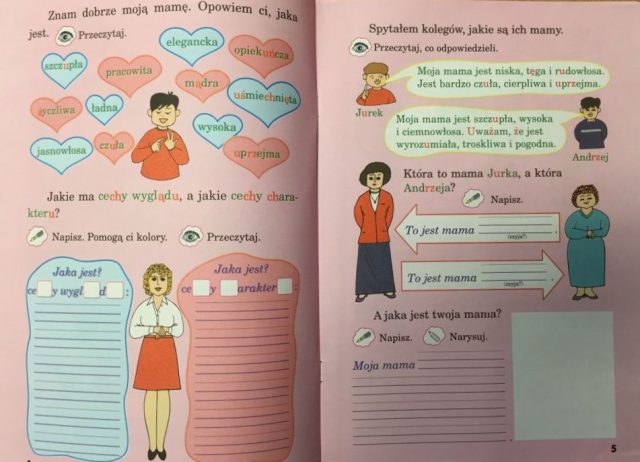 Znam dobrze moją mamę. Opowiem ci, jaka
jest. Przeczytaj.
elegancka
opiekuńcza
szczupła
pracowita
mądra
uśmiechnięta
życzliwa
ładna
wysoka
jasnowłosa
czuła
uprzejma
Jakie ma cechy wyglądu, a jakie cechy chara-
kteru?
Napisz. Pomogą ci kolory. Przeczytaj.
Jaka jest?
ce y wygl d :
Jaka jest?
ce y arakter :
Spytałem kolegów, jakie są ich mamy.
Przeczytaj, co odpowiedzieli.
Moja mama jest niska, tęga i rudowłosa.
Jest bardzo czuła, cierpliwa i uprzejma.
Jurek
Moja mama jest szczupła, wysoka
i ciemnowłosa. Uważam, że jest
wyrozumiała, troskliwa i pogodna.
Andrzej
Która to mama Jurka, a która
Andrzeja? Napisz.
To jest mama .
(czyja?)
To jest mama .
(czyja?)
A jaka jest twoja mama?
Napisz. Narysuj.
Moja mama
.
5